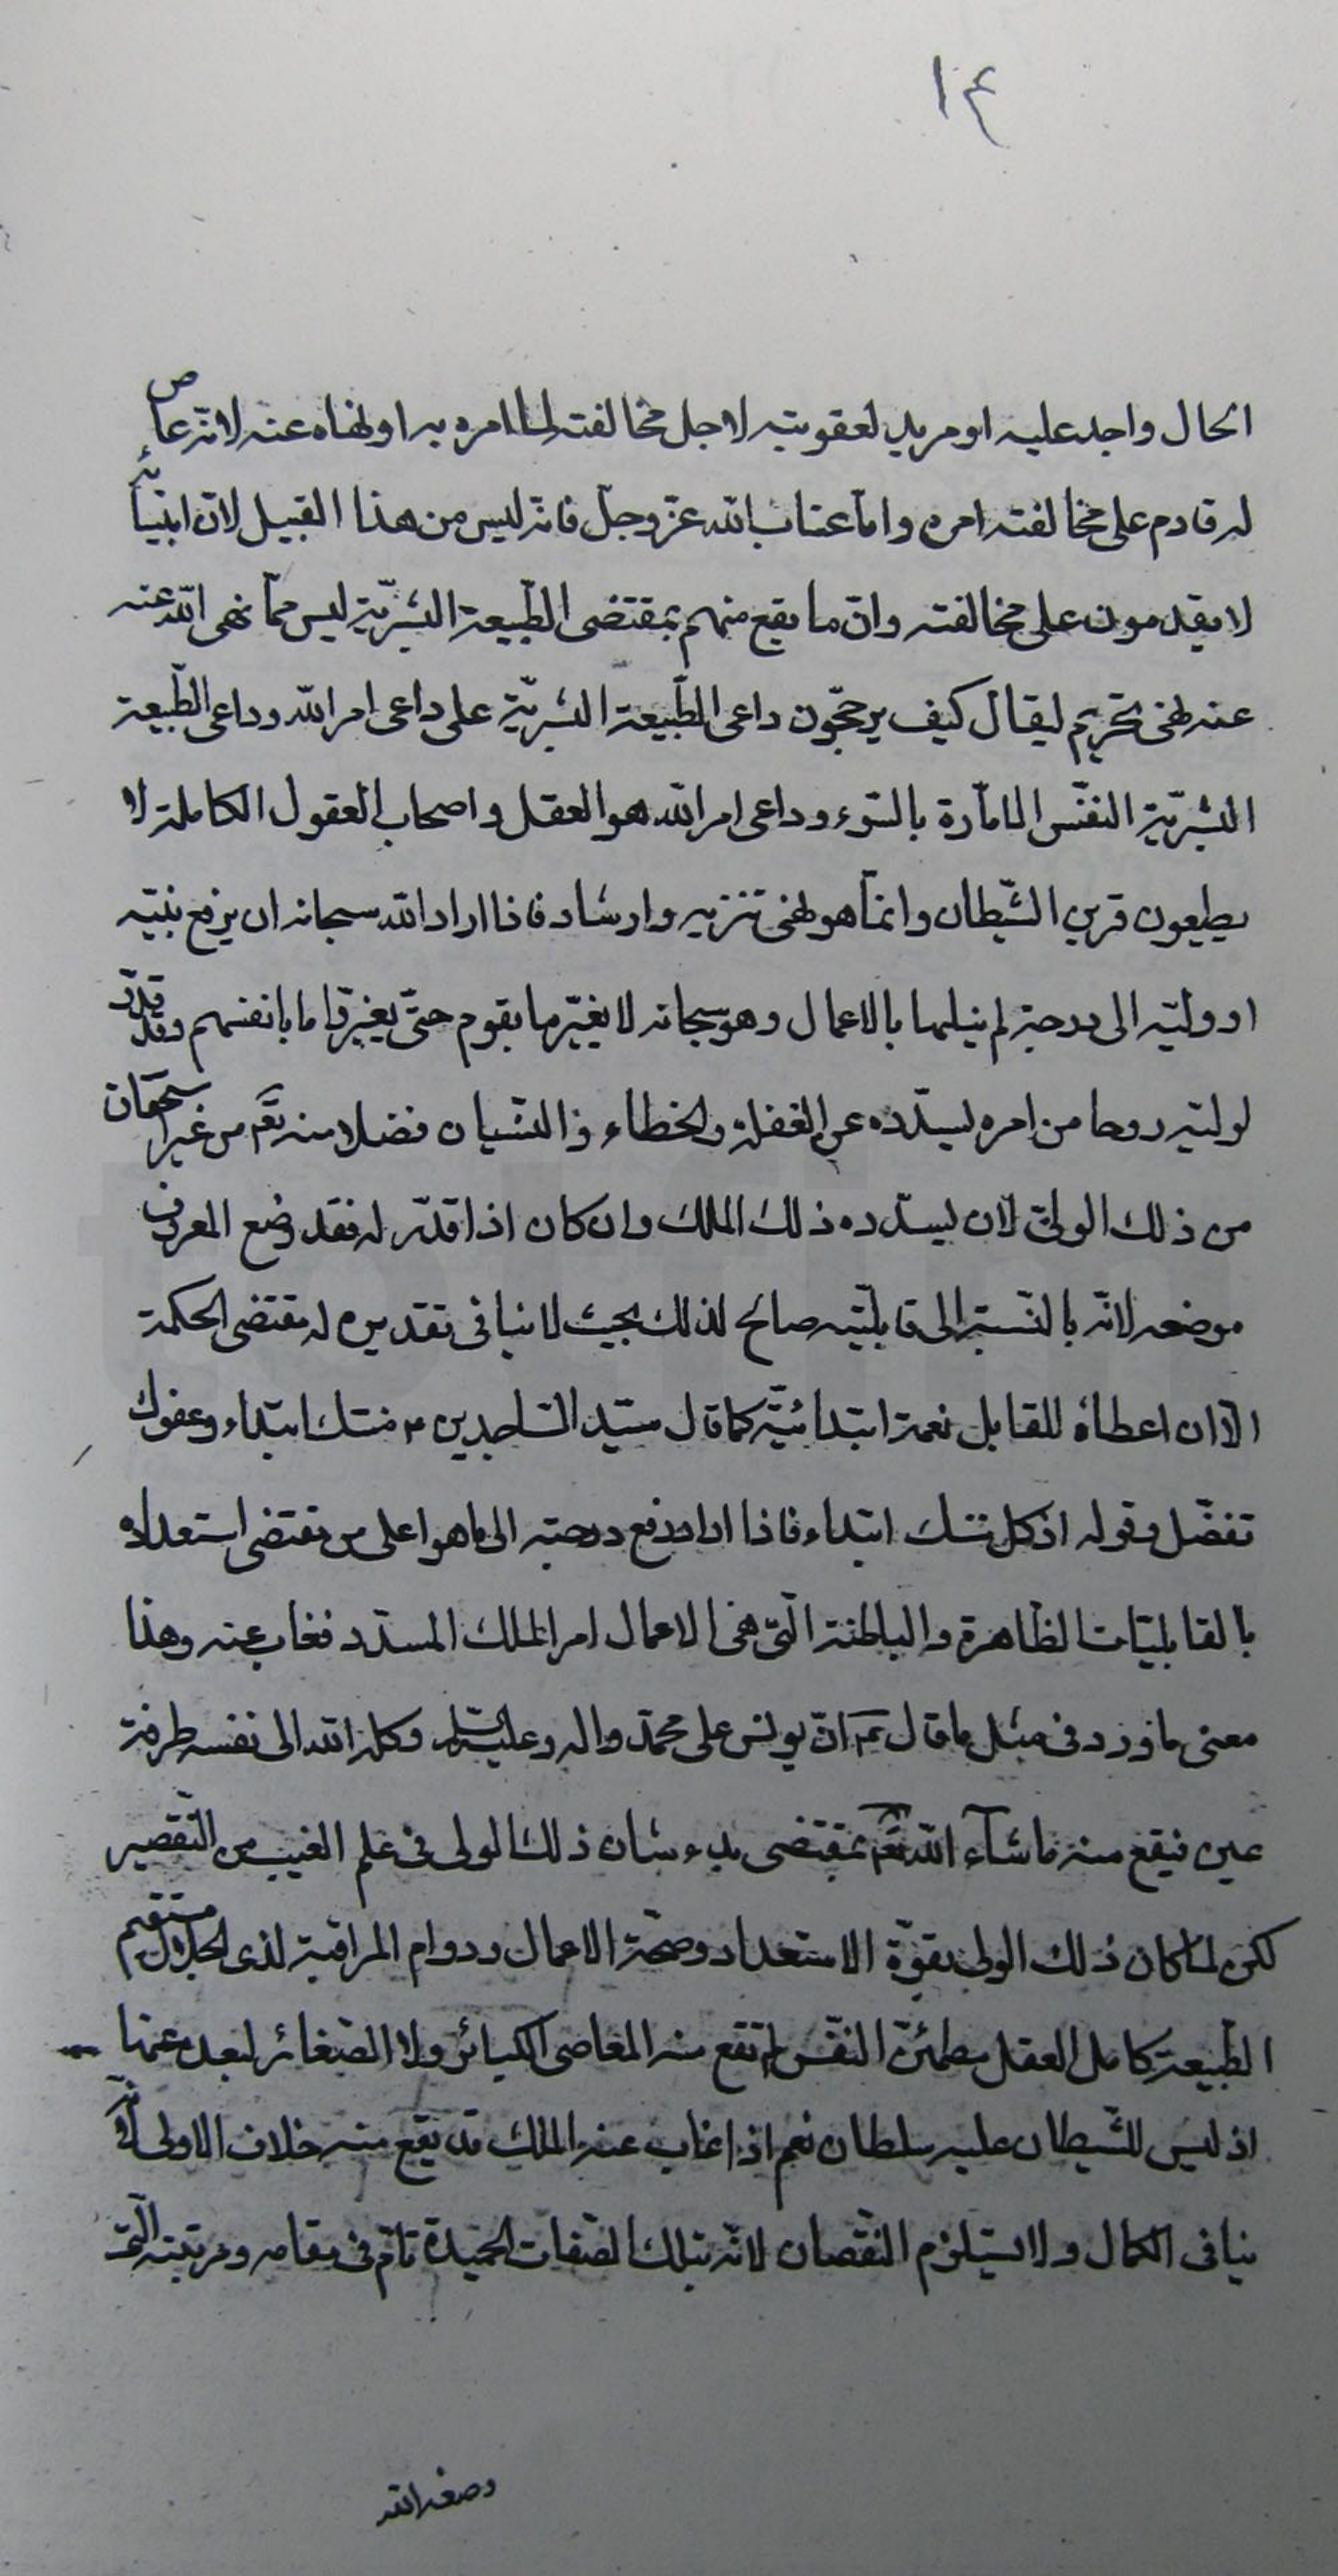 ١٤
الحال واجد عليه او مريد لعقوبته لاجل مخالفته لما امره به او نهاه عنه لانه عاص
له قادم على مخالفته امره واما عتاب الله عزّ وجلّ فانه ليس من هذا القبيل لانّ انبيائه
لا يقدمون على مخالفته وانّ ما يقع منهم بمقتضى الطّبيعة البشريّة ليس ممّا نهى الله عنه
عنه نهى تحريم ليقال كيف يرجّحون داعى الطّبيعة البشريّة على داعى امر الله وداعى الطّبيعة
البشريّة النفس الامّارة بالسّوء وداعى امر الله هو العقل واصحاب العقول الكاملة لا
يطيعون قرين الشّيطان وانّما هو نهى تنزيه وارشاد فاذا اراد الله سبحانه ان يرفع نبيّه
او وليّه الى درجة لم ينلها بالاعمال وهو سبحانه لا يغيّر ما بقوم حتّى يغيّروا ما بانفسهم وقد قدّر
لوليّه روحا من امره ليسدّده عن الغفلة والخطاء والنّسيان فضلا منه تعالى من غير استحقاق
من ذلك الولىّ لان يسدّده ذلك الملك وان كان اذا قدّر له فقد وضع المعروف
موضعه لانّه بالنّسبة الى قابليّته صالح لذلك بحيث لا ينافى تقديره له مقتضى الحكمة
الّا ان اعطاه للقابل نعمة ابتدائيّة كما قال سيّد السّاجدين ؏ منتك ابتداء وعفوك
تفضّل وقوله اذ كل نعمتك ابتداء فاذا اراد رفع درجته الى ما هو اعلى من مقتضى استعداده
بالقابليّات الظّاهرة والباطنة الّتى هى الاعمال امر الملك المسدّد فغاب عنه وهذا
معنى ما ورد فى مثل ما قال ؏ انّ يونس على محمّد واله وعليه السّلام وكله الله الى نفسه طرفة
عين فيقع منه ما شآء الله بمقتضى بدء شان ذلك الولى فى علم الغيب من التّقصير
لكن لمّا كان ذلك الولى بقوّة الاستعداد وصحّة الاعمال ودوام المراقبة لذى الجلال مستقيم
الطّبيعة كامل العقل مطمئن النّفس لم تقع منه المعاصى الكبائر ولا الصّغائر لبعده عنها
اذ ليس للشّيطان عليه سلطان نعم اذا غاب عنه الملك قد يقع منه خلاف الاولى لانّه لا
ينافى الكمال ولا يستلزم النّقصان لانّه بتلك الصّفات الحميدة تامّ فى مقامه ومرتبته الّتى
وصفه الله